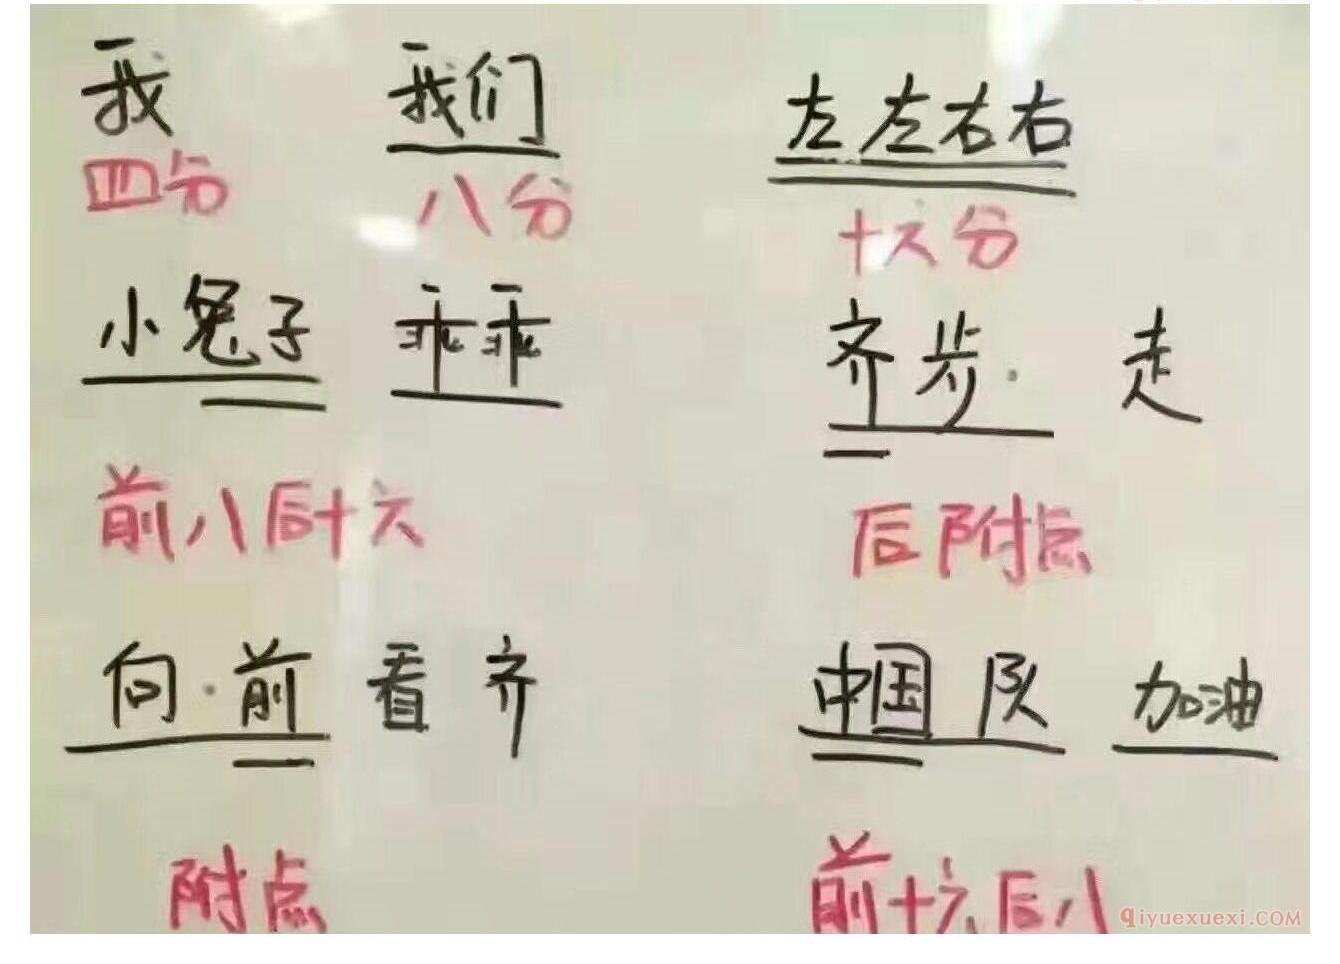 我 我们 左左右右
四分 八分 十六分
小兔子 乖乖 齐步· 走
前八后十六 后附点
向·前 看 齐 中国 队 加油
附点 前十六后八
qiyuexuexi.COM